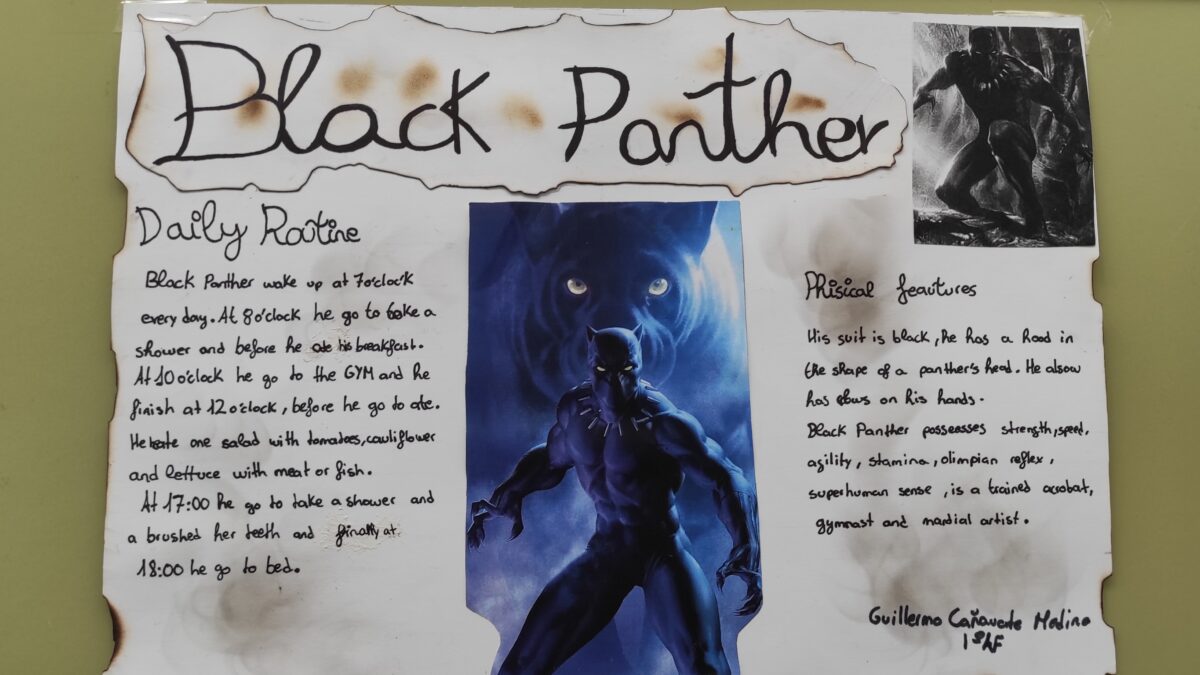 Black Panther
Daily Routine
Black Panther wake up at 7o'clock
every day. At 8 o'clock he go to take a
shower and before he ate his breakfast.
At 10 o'clock he go to the GYM and he
finish at 12 o'clock, before he go to ate.
He ate one salad with tomadoes, cauliflower
and lettuce with meat or fish.
At 17:00 he go to take a shower and
a brushed her teeth and finally at
18:00 he go to bed.
Phisical feautures
His suit is black, he has a hood in
the shape of a panther's head. He alsow
has claws on his hands.
Black Panther possesses strength, speed,
agility, stamina, olimpian reflex,
superhuman sense, is a trained acrobat,
gymnast and martial artist.
Guillermo Molina